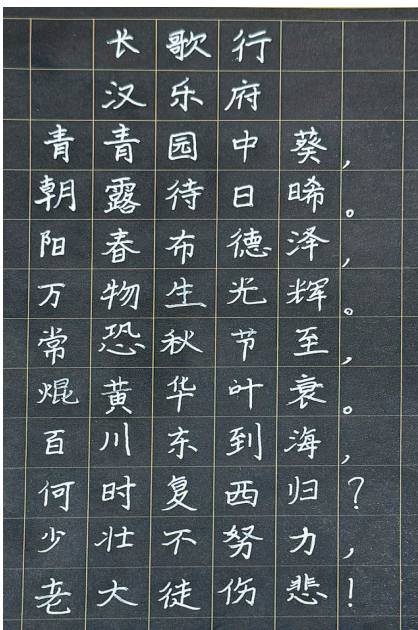 长歌行
汉乐府
青青园中葵，
朝露待日晞。
阳春布德泽，
万物生光辉。
常恐秋节至，
焜黄华叶衰。
百川东到海，
何时复西归？
少壮不努力，
老大徒伤悲！